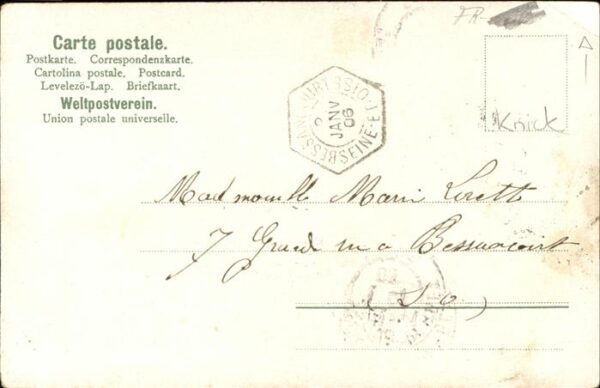 FR-
Carte postale.
Postkarte. Correspondenzkarte.
Cartolina postale. Postcard.
Levelezö-Lap. Briefkaart.
Weltpostverein.
Union postale universelle.
2
JANV
06
SEINE-E
Knick
Mademoiselle Marie
7 Grande rue à Bessancourt
(S. O)